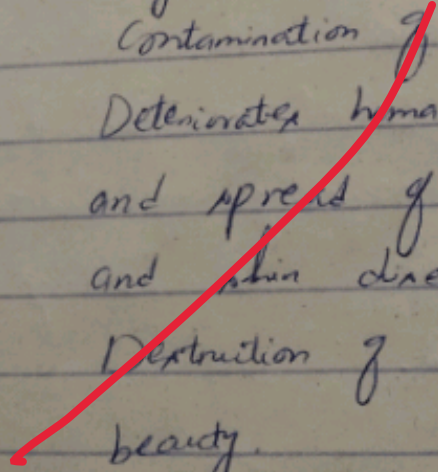 Contamination of
Deteriorates huma
and spread of
and skin dise
Destruction of
beauty.